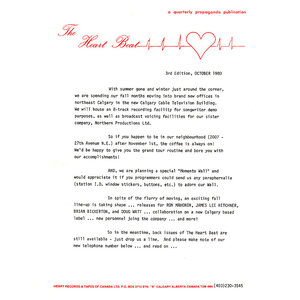 a quarterly propaganda publication
The Heart Beat
3rd Edition, OCTOBER 1980
With summer gone and winter just around the corner,
we are spending our fall months moving into brand new offices in
northeast Calgary in the new Calgary Cable Television Building.
We will house an 8-track recording facility for songwriter demo
purposes, as well as broadcast voicing facilities for our sister
company, Northern Productions Ltd.
So if you happen to be in our neighbourhood (2007 -
27th Avenue N.E.) after November 1st, the coffee is always on!
We'd be happy to give you the grand tour routine and bore you with
our accomplishments!
AND, we are planning a special "Momento Wall" and
would appreciate it if you programmers could send us any paraphernalia
(station I.D. window stickers, buttons, etc.) to adorn our Wall.
In spite of the flurry of moving, an exciting fall
line-up is taking shape ... releases for RON MAHONIN, JAMES LEE HITCHNER,
BRIAN RICHERTON, and DOUG WATT ... collaboration on a new Calgary based
label ... new personnel joing the company ... and more!
So in the meantime, back issues of The Heart Beat are
still available - just drop us a line. And please make note of our
new telephone number below ... and read on ...
HEART RECORDS & TAPES OF CANADA LTD. P.O. BOX
CALGARY, ALBERTA CANADA
(403)230-3545